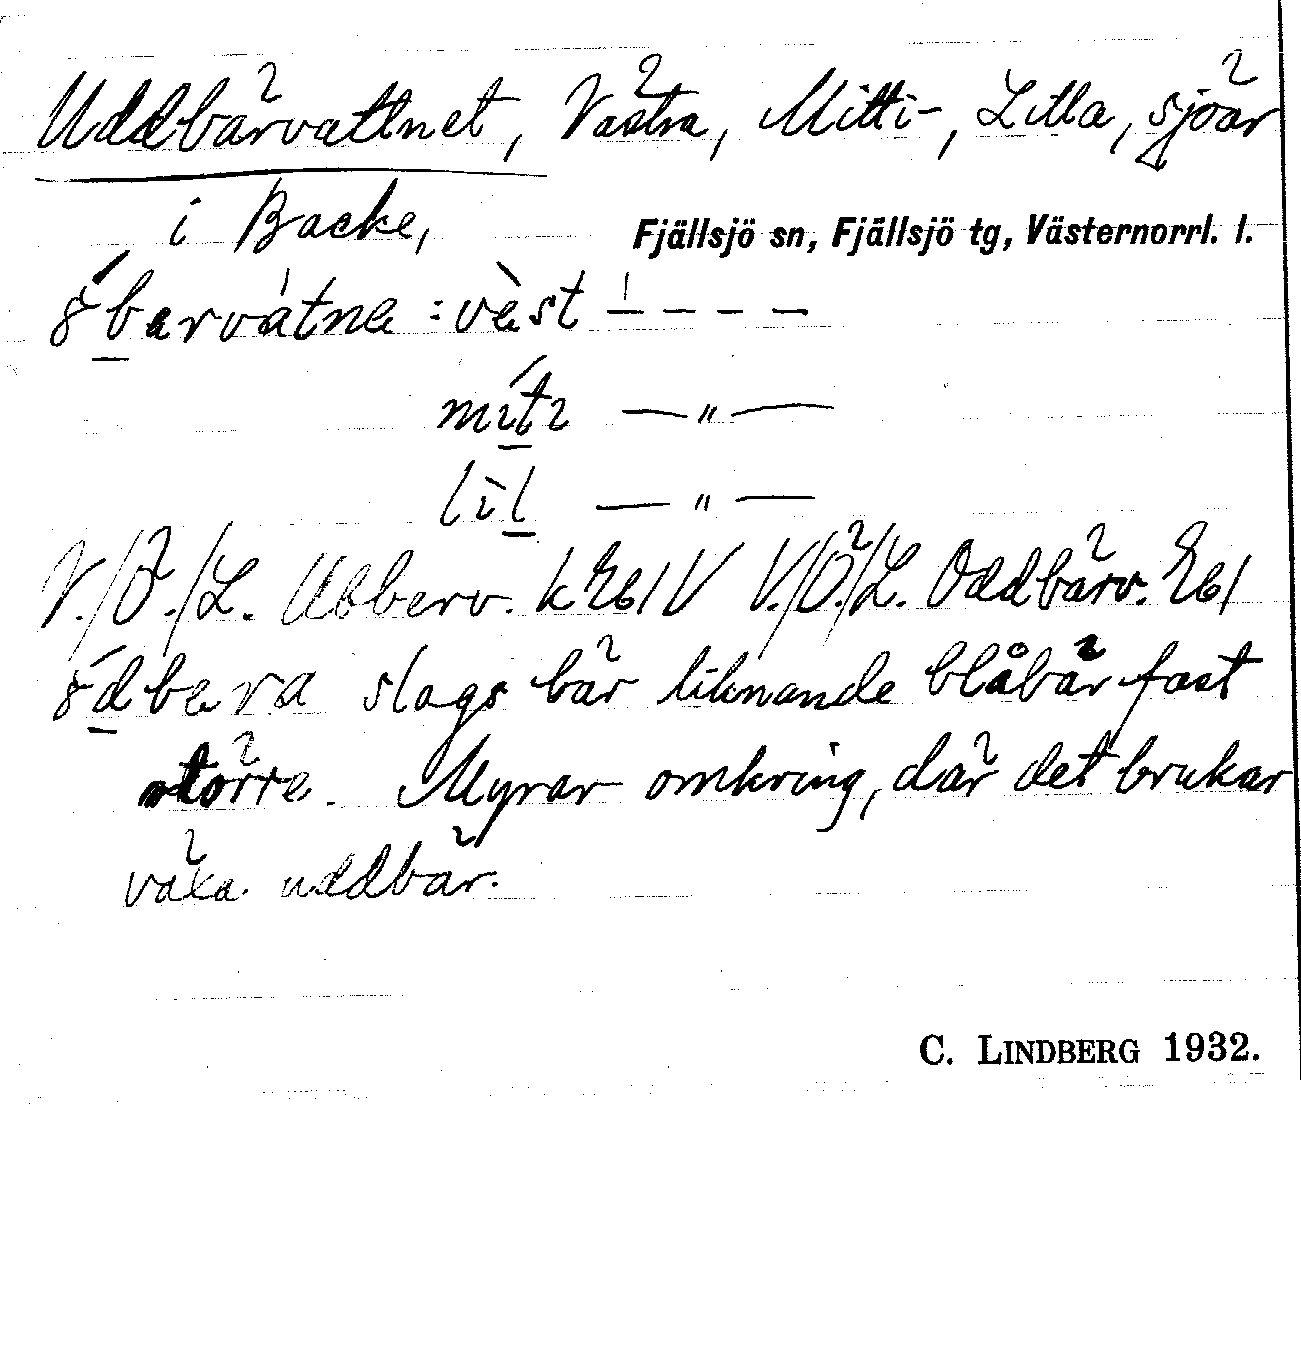 Uddbärvattnet, Västra, Mitti-, Lilla, sjöar
i Backe, Fjällsjö sn, Fjällsjö tg, Västernorrl. l.
: väst – – – –
míti — " —
lìl — " —
V./Ö./L. Ubberv. k Eb1V V./Ö./L. Oddbärv. Eb1
slags bär liknande blåbär fast
större. Myrar omkring, där det brukar
växa uddbär.
C. LINDBERG 1932.